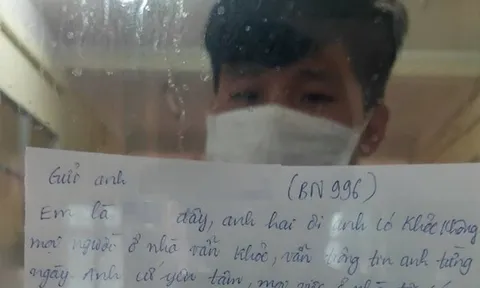 Gửi anh (BN 996)
Em là đây, anh hai ơi anh có khỏe không
mọi người ở nhà vẫn khỏe, vẫn trông tin anh từng
ngày. Anh cứ yên tâm, mọi việc ở nhà